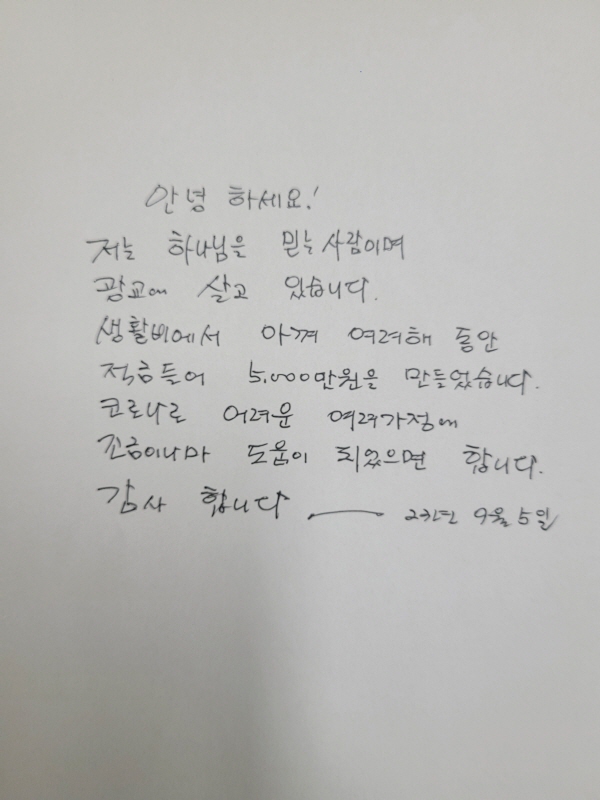 안녕 하세요!
저는 하나님을 믿는 사람이며
광교에 살고 있습니다.
생활비에서 아껴 여러해 동안
적금들어 5,000만원을 만들었습니다.
코로나로 어려운 여러가정에
조금이나마 도움이 되었으면 합니다.
감사 합니다 — 23년 9월 5일